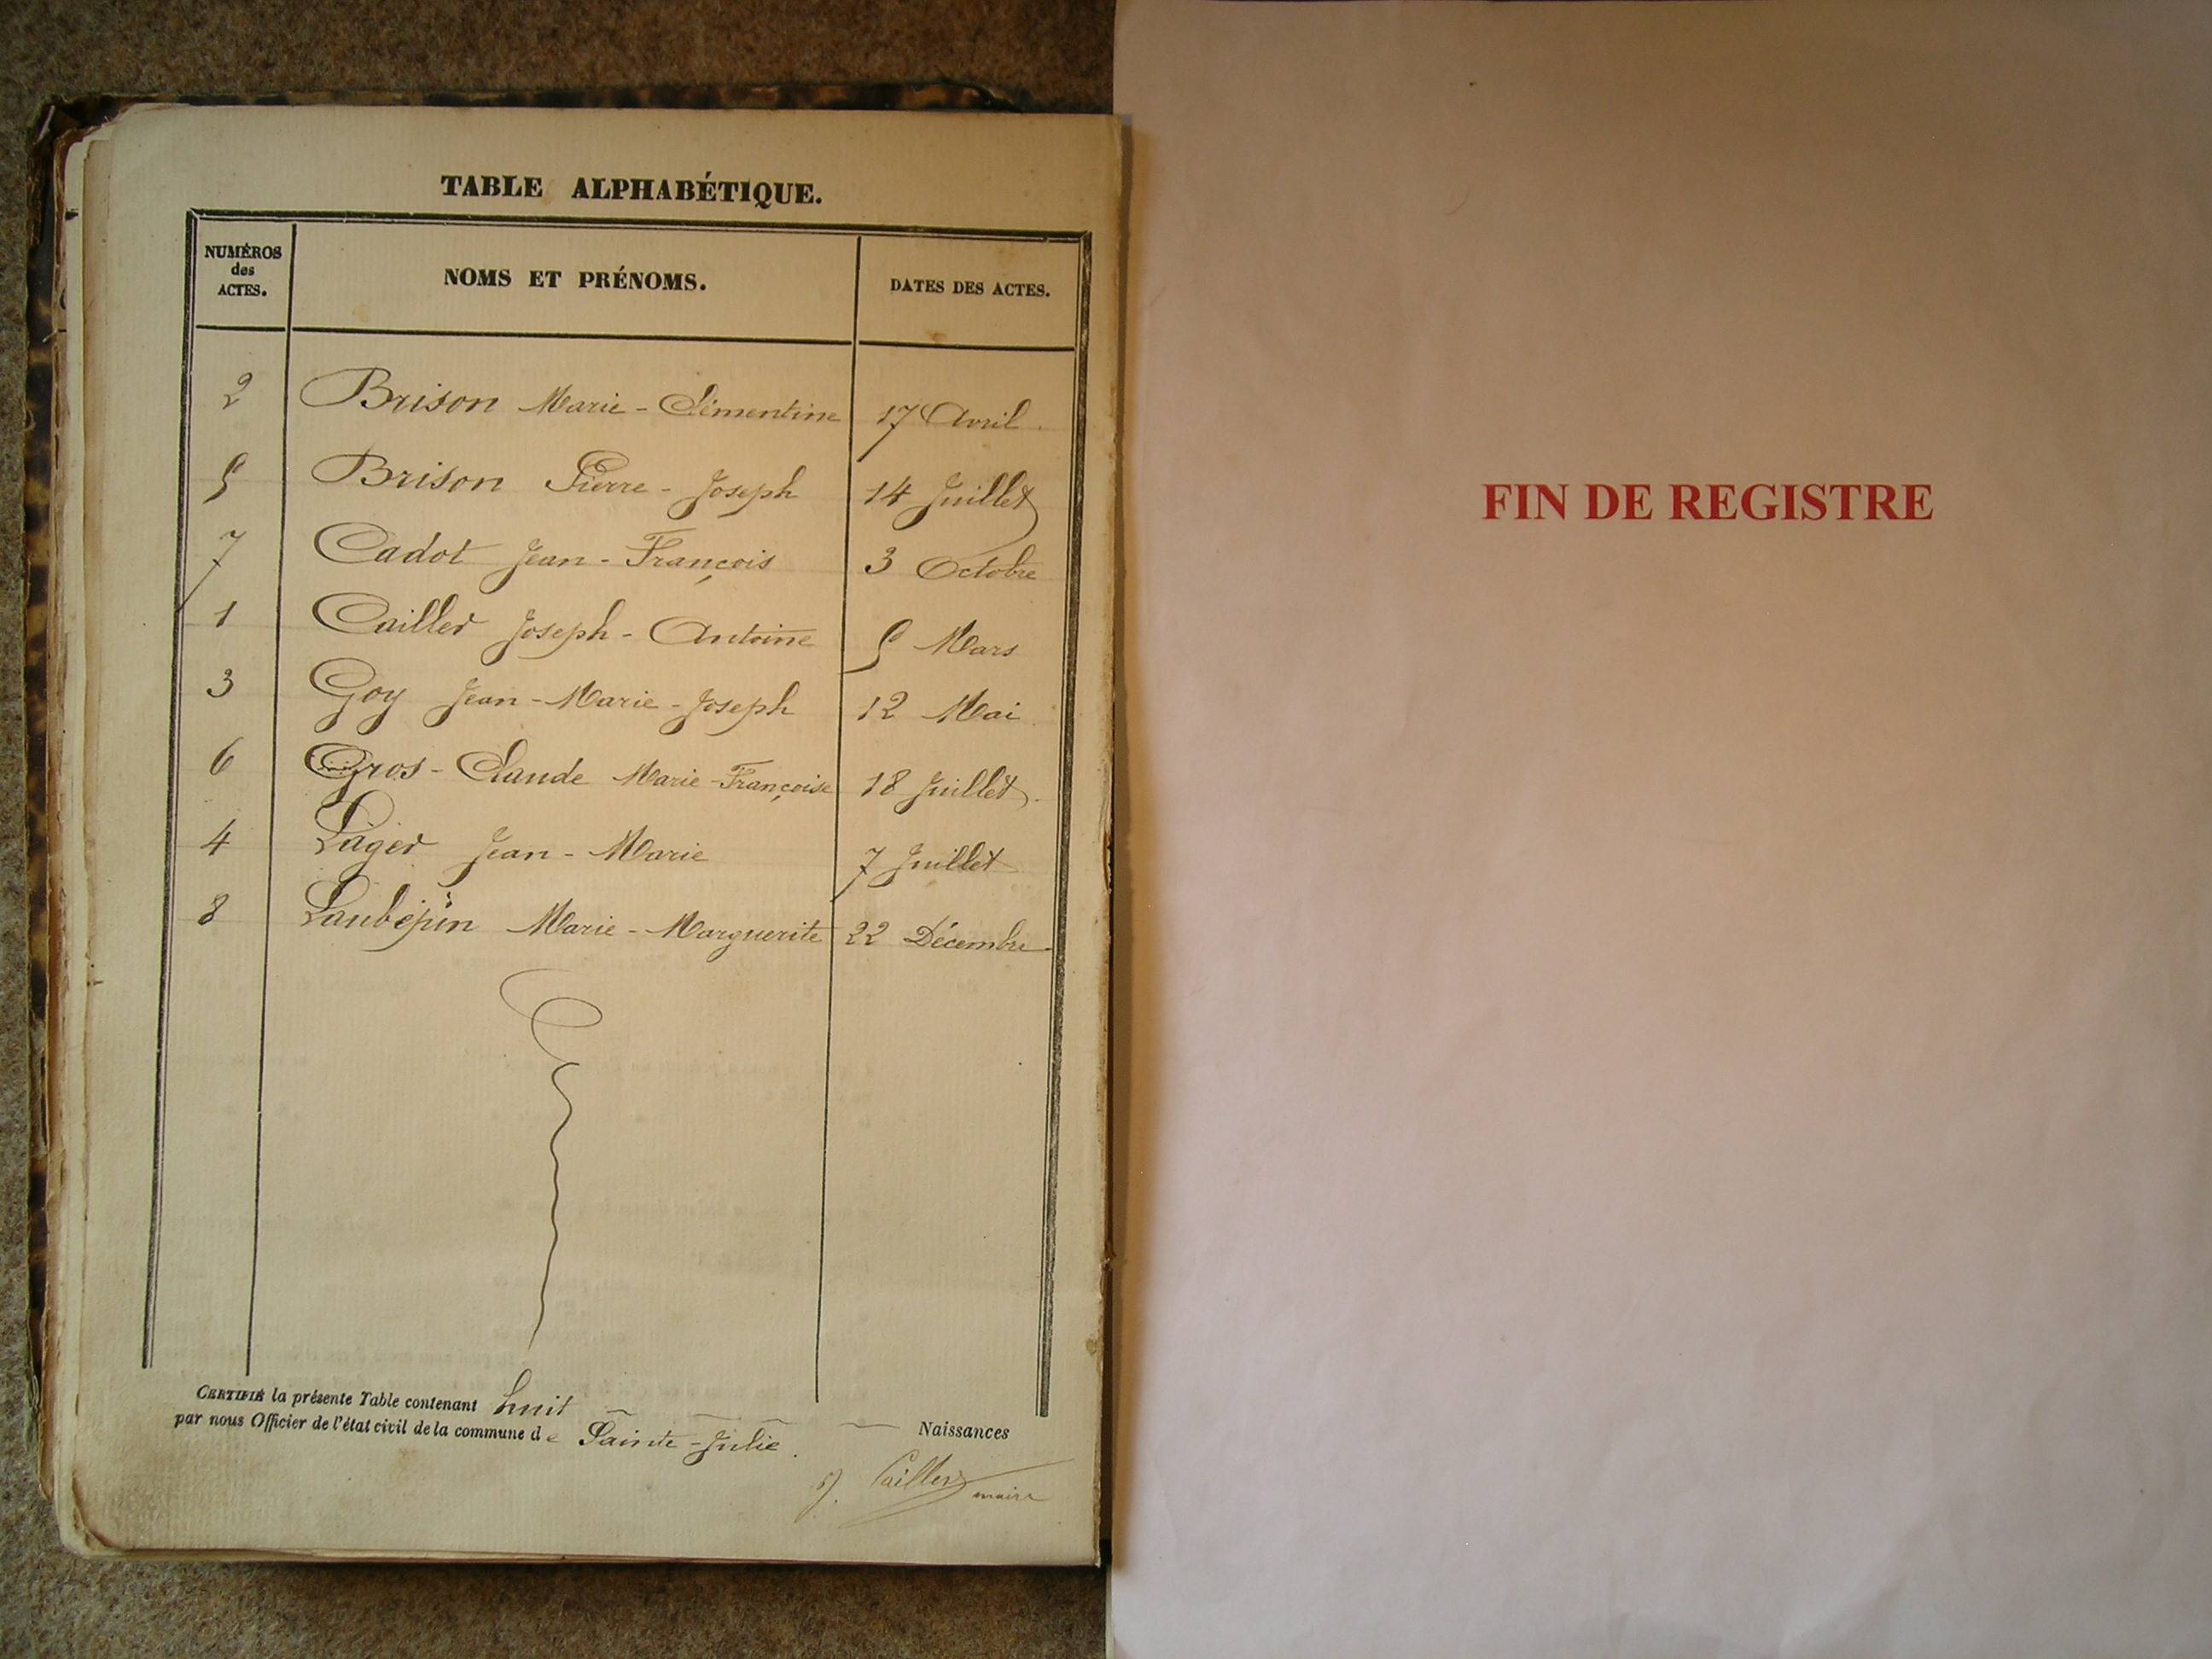 TABLE ALPHABÉTIQUE.
NUMÉROS des ACTES. NOMS ET PRÉNOMS. DATES DES ACTES.
2 Brison Marie-Clémentine 17 Avril.
5 Brison Pierre-Joseph 14 Juillet
7 Cadot Jean-François 3 Octobre
1 Cailler Joseph-Antoine 5 Mars
3 Goy Jean-Marie-Joseph 12 Mai
6 Gros-Claude Marie-Françoise 18 Juillet.
4 Lager Jean-Marie 7 Juillet
8 Laubépin Marie-Marguerite 22 Décembre
CERTIFIÉ la présente Table contenant huit Naissances
par nous Officier de l'état civil de la commune de Sainte-Julie.
J. Cailler maire
FIN DE REGISTRE